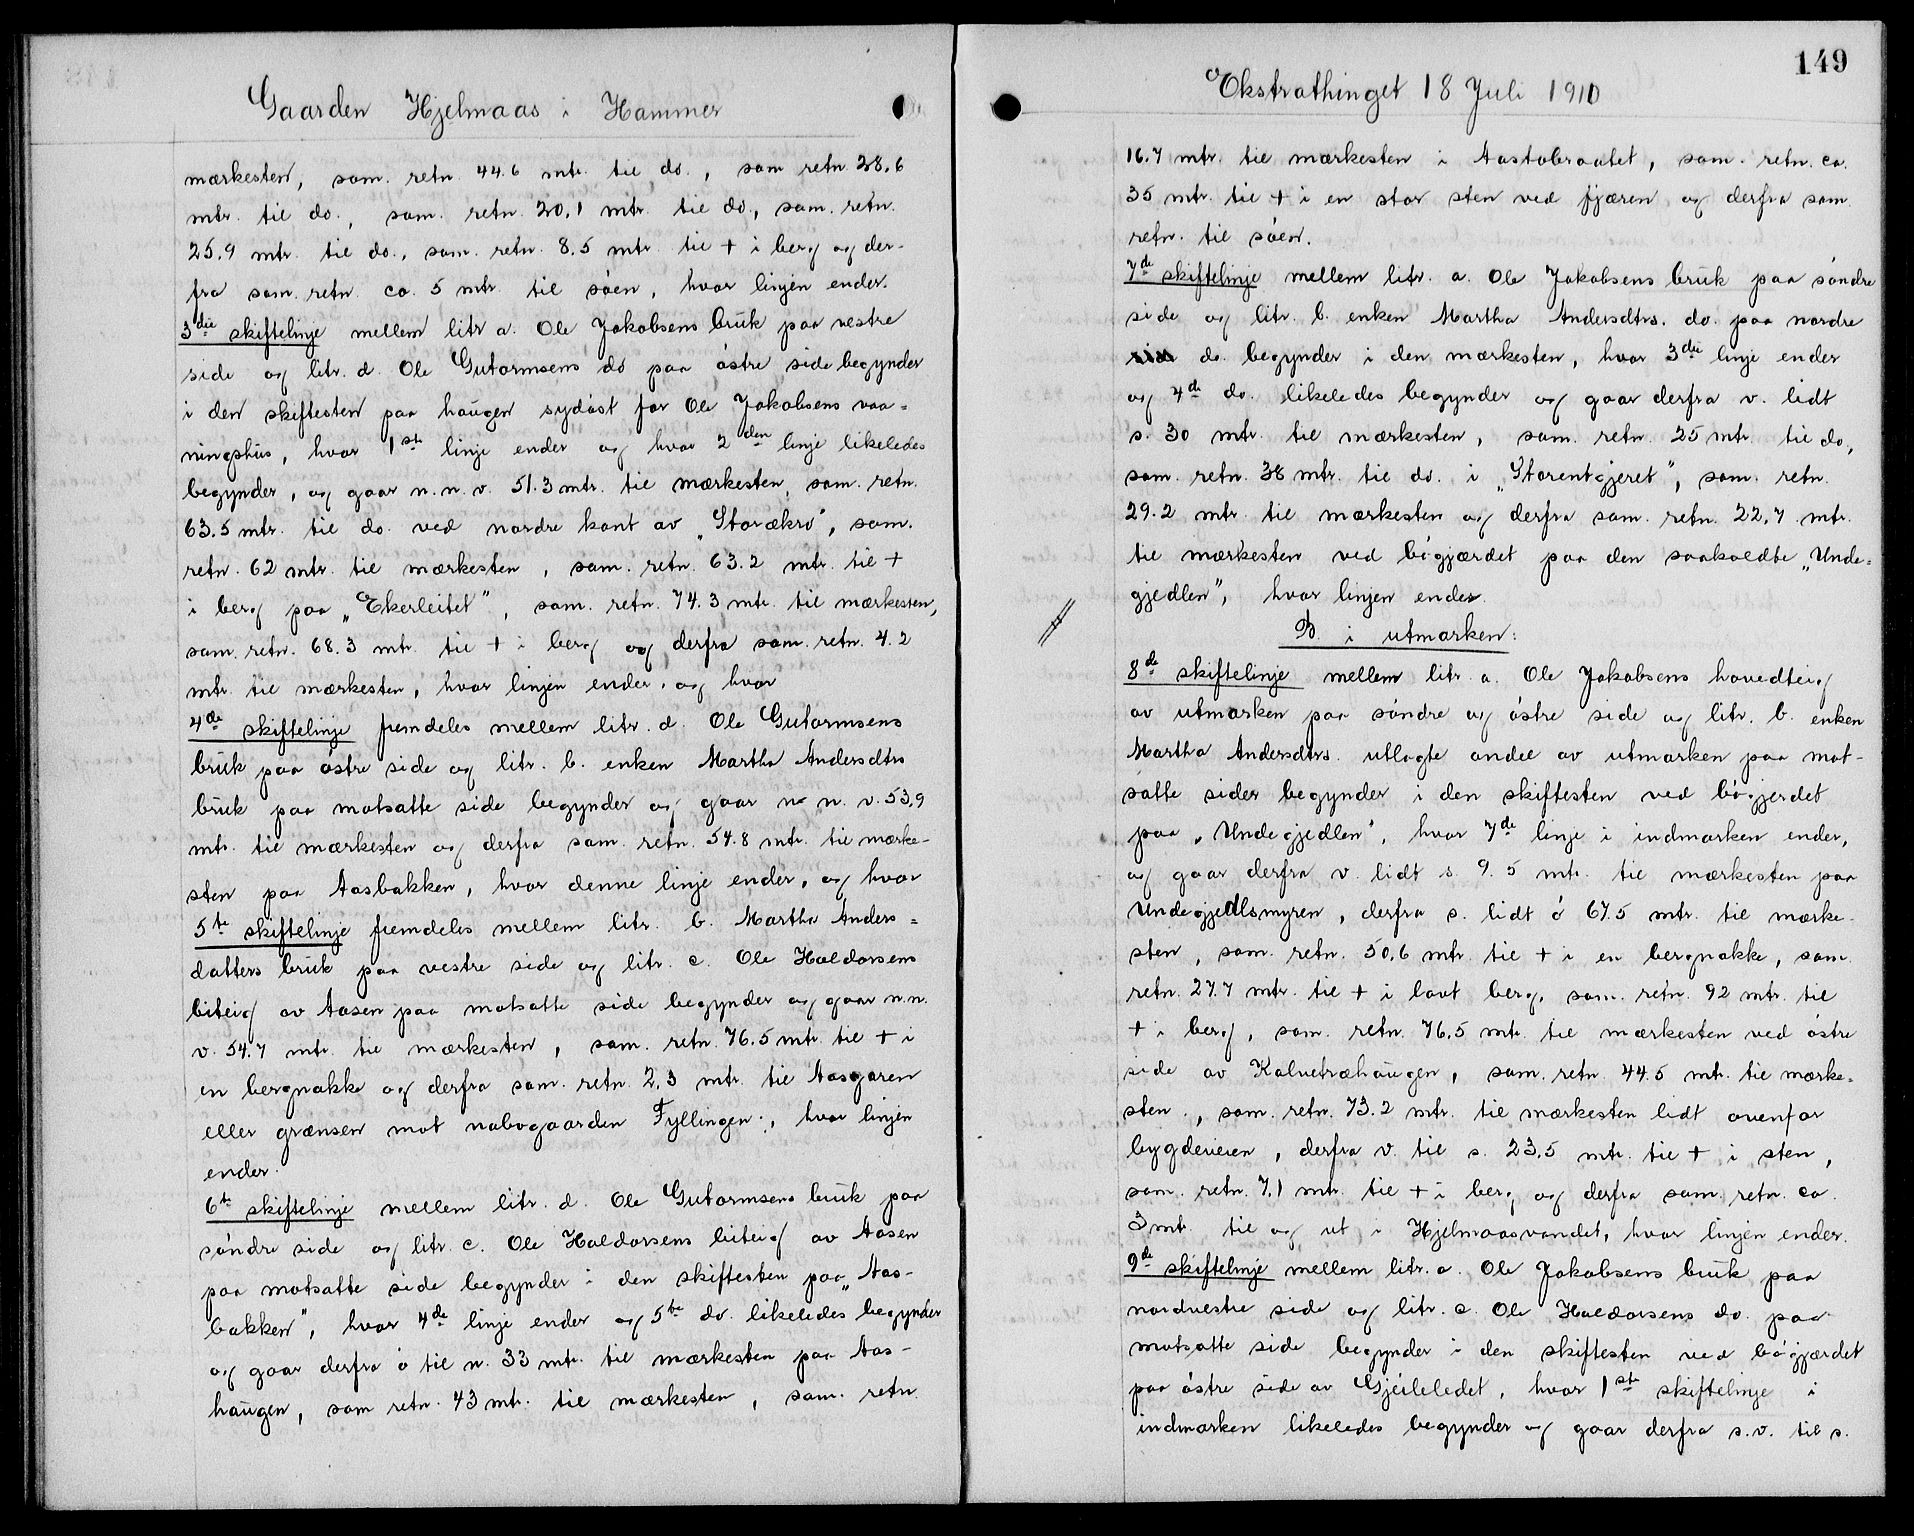 Gaarden Hjelmaas i Hammer
mærkesten, sam. retn. 44.6 mtr. til do., sam retn 28.6
mtr. til do., sam. retn. 20,1 mtr. til do., sam. retn.
25.9 mtr. til do., sam. retn. 8.5 mtr. til + i berg og der-
fra sam. retn. ca. 5 mtr. til søen, hvor linjen ender.
3die skiftelinje mellem litr a. Ole Jakobsens bruk paa vestre
side og litr. d. Ole Gutormsens do paa østre side begynder
i den skiftesten paa haugen sydøst for Ole Jakobsens vaa=
ningshus, hvor 1ste linje ender og hvor 2den linje likeledes
begynder, og gaar n.n.v. 51.3 mtr. til mærkesten, sam. retn.
63.5 mtr. til do. ved nordre kant av „Storækrо", sam.
retn. 62 mtr. til mærkesten, sam. retn. 63.2 mtr. til +
i berg paa „Ekerleitet", sam. retn. 74.3 mtr. til mærkesten,
sam. retn. 68.3 mtr. til + i berg og derfra sam. retn. 4.2
mtr. til mærkesten, hvor linjen ender, og hvor
4de skiftelinje fremdeles mellem litr. d. Ole Gutormsens
bruk paa østre side og litr. b. enken Martha Andersdtrs
bruk paa motsatte side begynder og gaar n n. v. 53,9
mtr. til mærkesten og derfra sam. retn. 54.8 mtr. til mærke-
sten paa Aasbakken, hvor denne linje ender, og hvor
5te skiftelinje fremdeles mellem litr. b. Martha Anders=
datters bruk paa vestre side og litr. c. Ole Haldorsens
biteig av Aasen paa motsatte side begynder og gaar n.n.
v. 54.7 mtr. til mærkesten, sam. retn. 76.5 mtr. til + i
en bergnakke og derfra sam. retn. 2,3 mtr. til Aasgaren
eller grænsen mot nabogaarden Fyllingen, hvor linjen
ender.
6te skiftelinje mellem litr. d. Ole Gutormsens bruk paa
søndre side og litr. c. Ole Haldorsens biteig av Aasen
paa motsatte side begynder i den skiftesten paa „Aas-
bakken", hvor 4de linje ender og 5te do. likeledes begynder
og gaar derfra ø til n. 33 mtr. til mærkesten paa Aas-
haugen, sam retn. 43 mtr. til mærkesten, sam. retn.
149
Ekstrathinget 18 Juli 1910
16.7 mtr. til mærkesten i Aastobraatet, sam. retn. ca.
35 mtr. til + i en stor sten ved fjæren og derfra sam.
retn. til søen.
7de skiftelinje mellem litr. a. Ole Jakobsens bruk paa søndre
side og litr. b. enken Martha Andersdtrs. do. paa nordre
side do. begynder i den mærkesten, hvor 3die linje ender
og 4de do. likeledes begynder og gaar derfra v. lidt
s. 30 mtr. til mærkesten, sam. retn. 25 mtr. til do,
sam. retn. 38 mtr. til do. i „Storentgjeret", sam. retn.
29.2 mtr. til mærkesten og derfra sam. retn. 22,7 mtr.
til mærkesten ved bøgjærdet paa den saakaldte „Unde=
gjedlen", hvor linjen ender.
B. i utmarken:
8de skiftelinje mellem litr. a. Ole Jakobsens hovedteig
av utmarken paa søndre og østre side og litr. b. enken
Martha Andersdtrs. utlagte andel av utmarken paa mot-
satte sider begynder i den skiftesten ved bøgjerdet
paa „Undegjedlen", hvor 7de linje i indmarken ender,
og gaar derfra v. lidt s. 9.5 mtr. til mærkesten paa
Undegjedlsmyren, derfra s. lidt ø 67.5 mtr. til mærke-
sten, sam. retn. 50,6 mtr. til + i en bergnakke, sam.
retn. 27.7 mtr. til + i lavt berg, sam. retn. 92 mtr. til
+ i berg, sam. retn. 76,5 mtr. til mærkesten ved østre
side av Kalvetræhaugen, sam. retn. 44.5 mtr. til mærke=
sten., sam. retn. 73.2 mtr. til mærkesten lidt ovenfor
bygdeveien, derfra v. til s. 23,5 mtr. til + i sten,
sam. retn. 7,1 mtr. til + i berg og derfra sam. retn. ca.
3 mtr. til og ut i Hjelmaasvandet, hvor linjen ender.
9de skiftelinje mellem litr. a. Ole Jakobsens bruk paa
nordvestre side og litr. c. Ole Haldorsens do. paa
motsatte side begynder i den skiftesten ved bøgjærdet
paa østre side av Gjeileledet, hvor 1ste skiftelinje i
indmarken likeledes begynder og gaar derfra s.v. til s.